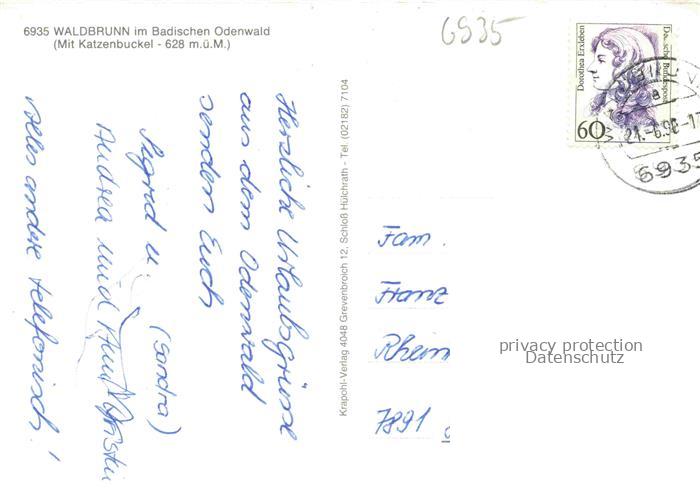 6935 WALDBRUNN im Badischen Odenwald
(Mit Katzenbuckel - 628 m.ü.M.)
6935
Dorothea Erxleben
Deutsche Bundespost
60
21.-6.90-17
6935
Herzliche Urlaubsgrüsse
aus dem Odenwald
senden Euch
Sigrid u.
(Sandra)
Andrea und
alles andere telefonisch!
Krapohl-Verlag 4048 Grevenbroich 12, Schloß Hülchrath - Tel. (02182) 7104
Fam.
Franz
Rhein
7891
privacy protection
Datenschutz